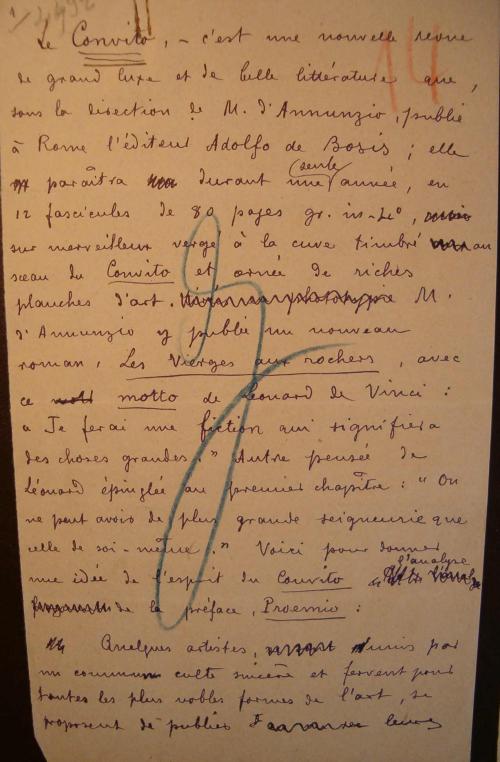 14
Le Convito, – c'est une nouvelle revue
de grand luxe et de belle littérature que,
sous la direction de M. d'Annunzio, publie
à Rome l'éditeur Adolfo de Bosis ; elle
paraîtra durant une seule année, en
12 fascicules de 80 pages gr. in-4°,
sur merveilleux vergé à la cuve timbré au
sceau du Convito et ornée de riches
planches d'art. M.
d'Annunzio y publie un nouveau
roman, Les Vierges aux rochers, avec
ce motto de Léonard de Vinci :
« Je ferai une fiction qui signifiera
des choses grandes. » Autre pensée de
Léonard épinglée au premier chapître : " On
ne peut avoir de plus grande seigneurie que
celle de soi-même. " Voici pour donner
une idée de l'esprit du Convito l'analyse
de la préface, Proemio :
Quelques artistes, unis par
un commun culte sincère et fervent pour
toutes les plus nobles formes de l'art, se
proposent de publier leurs